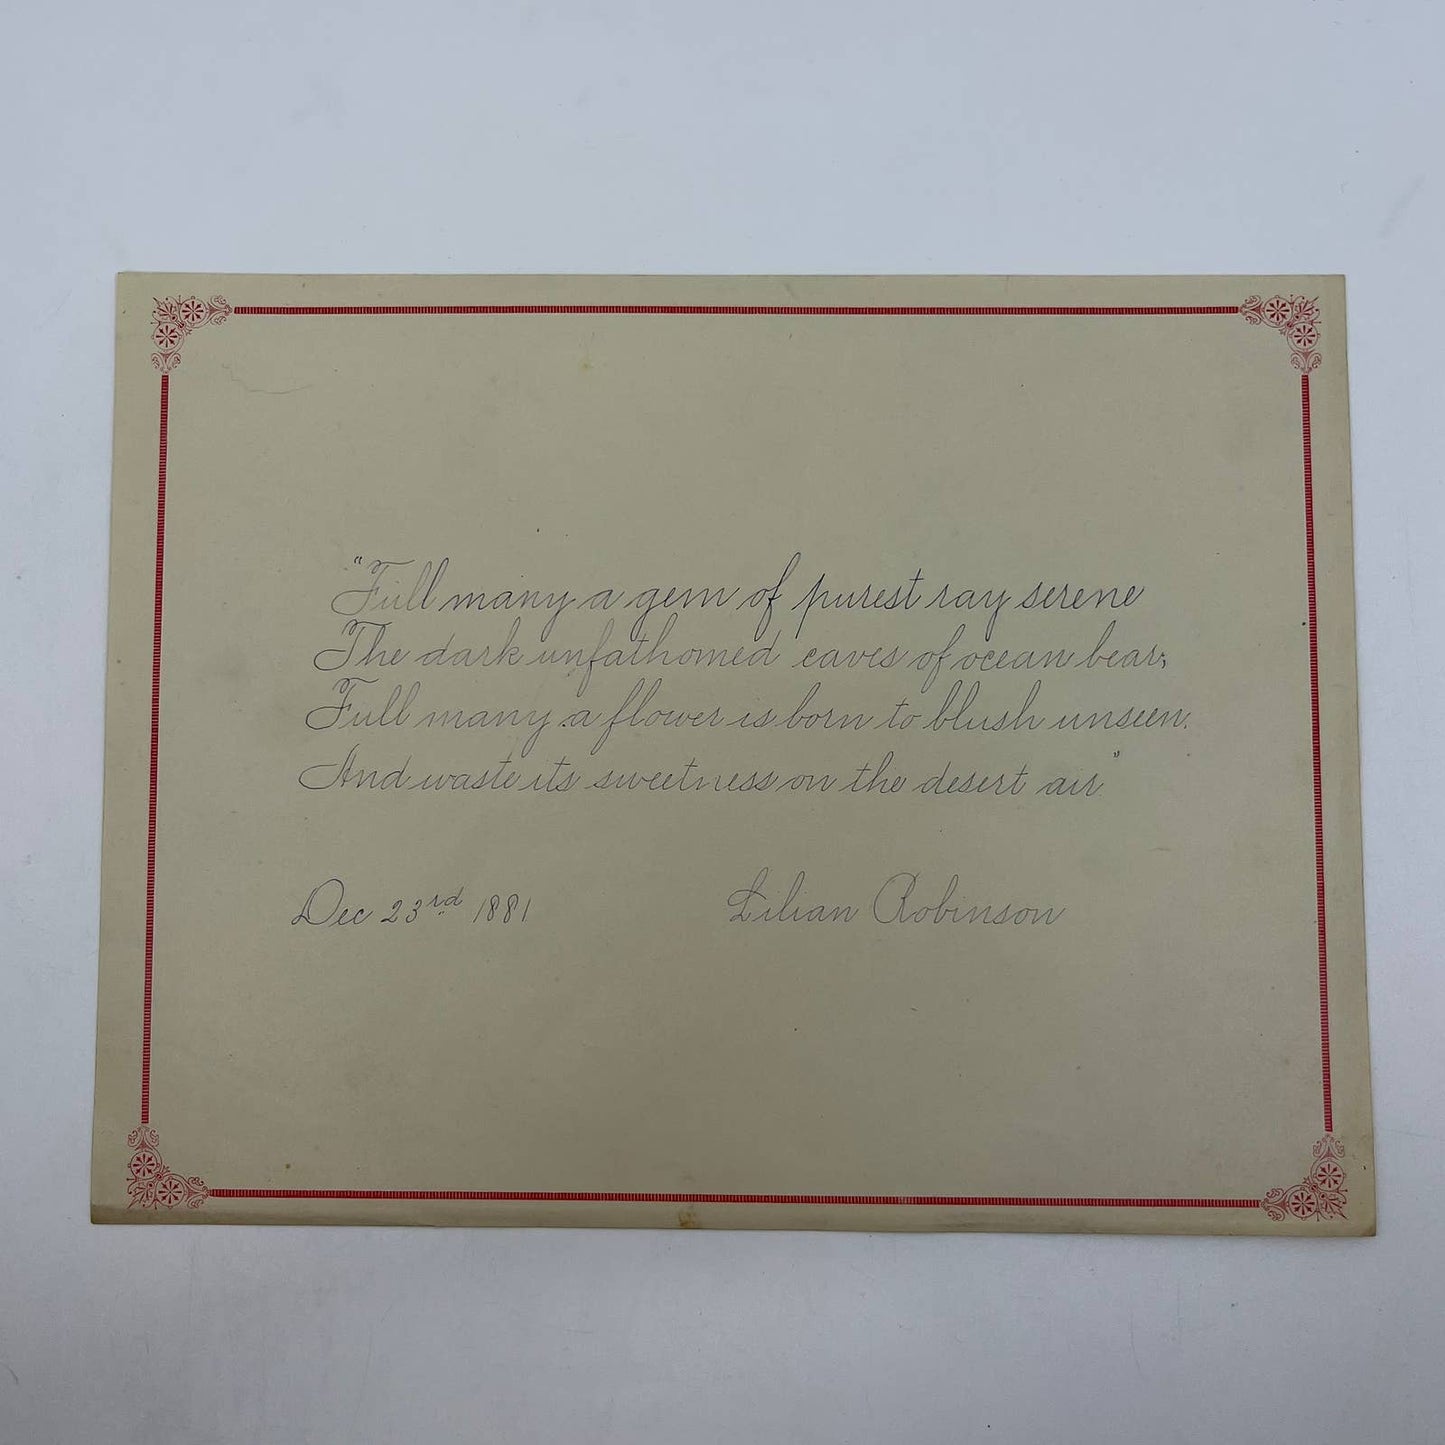 "Full many a gem of purest ray serene
The dark unfathomed caves of ocean bear;
Full many a flower is born to blush unseen.
And waste its sweetness on the desert air"
Dec 23rd 1881 Lilian Robinson